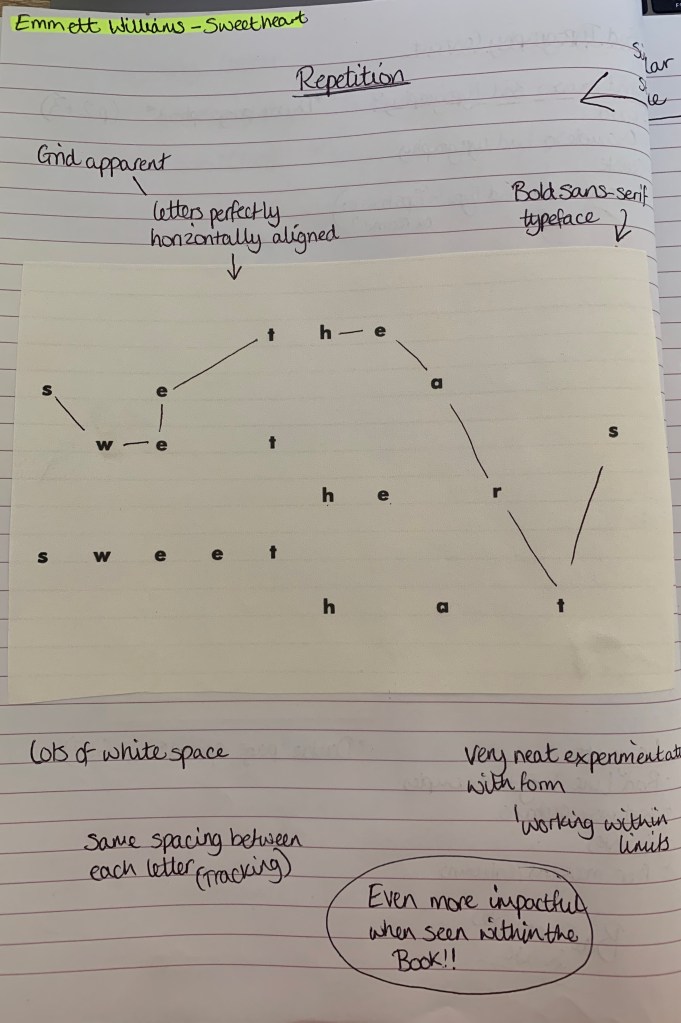 Emmett Williams – Sweetheart
Repetition
Grid apparent
letters perfectly
horizontally aligned
Bold sans-serif
typeface
t h e
s e a
w e t s
h e r
s w e e t
h a t
Lots of white space
Very neat
with form
working within
limits
same spacing between
each letter (Tracking)
Even more impactful
when seen within the
Book!!